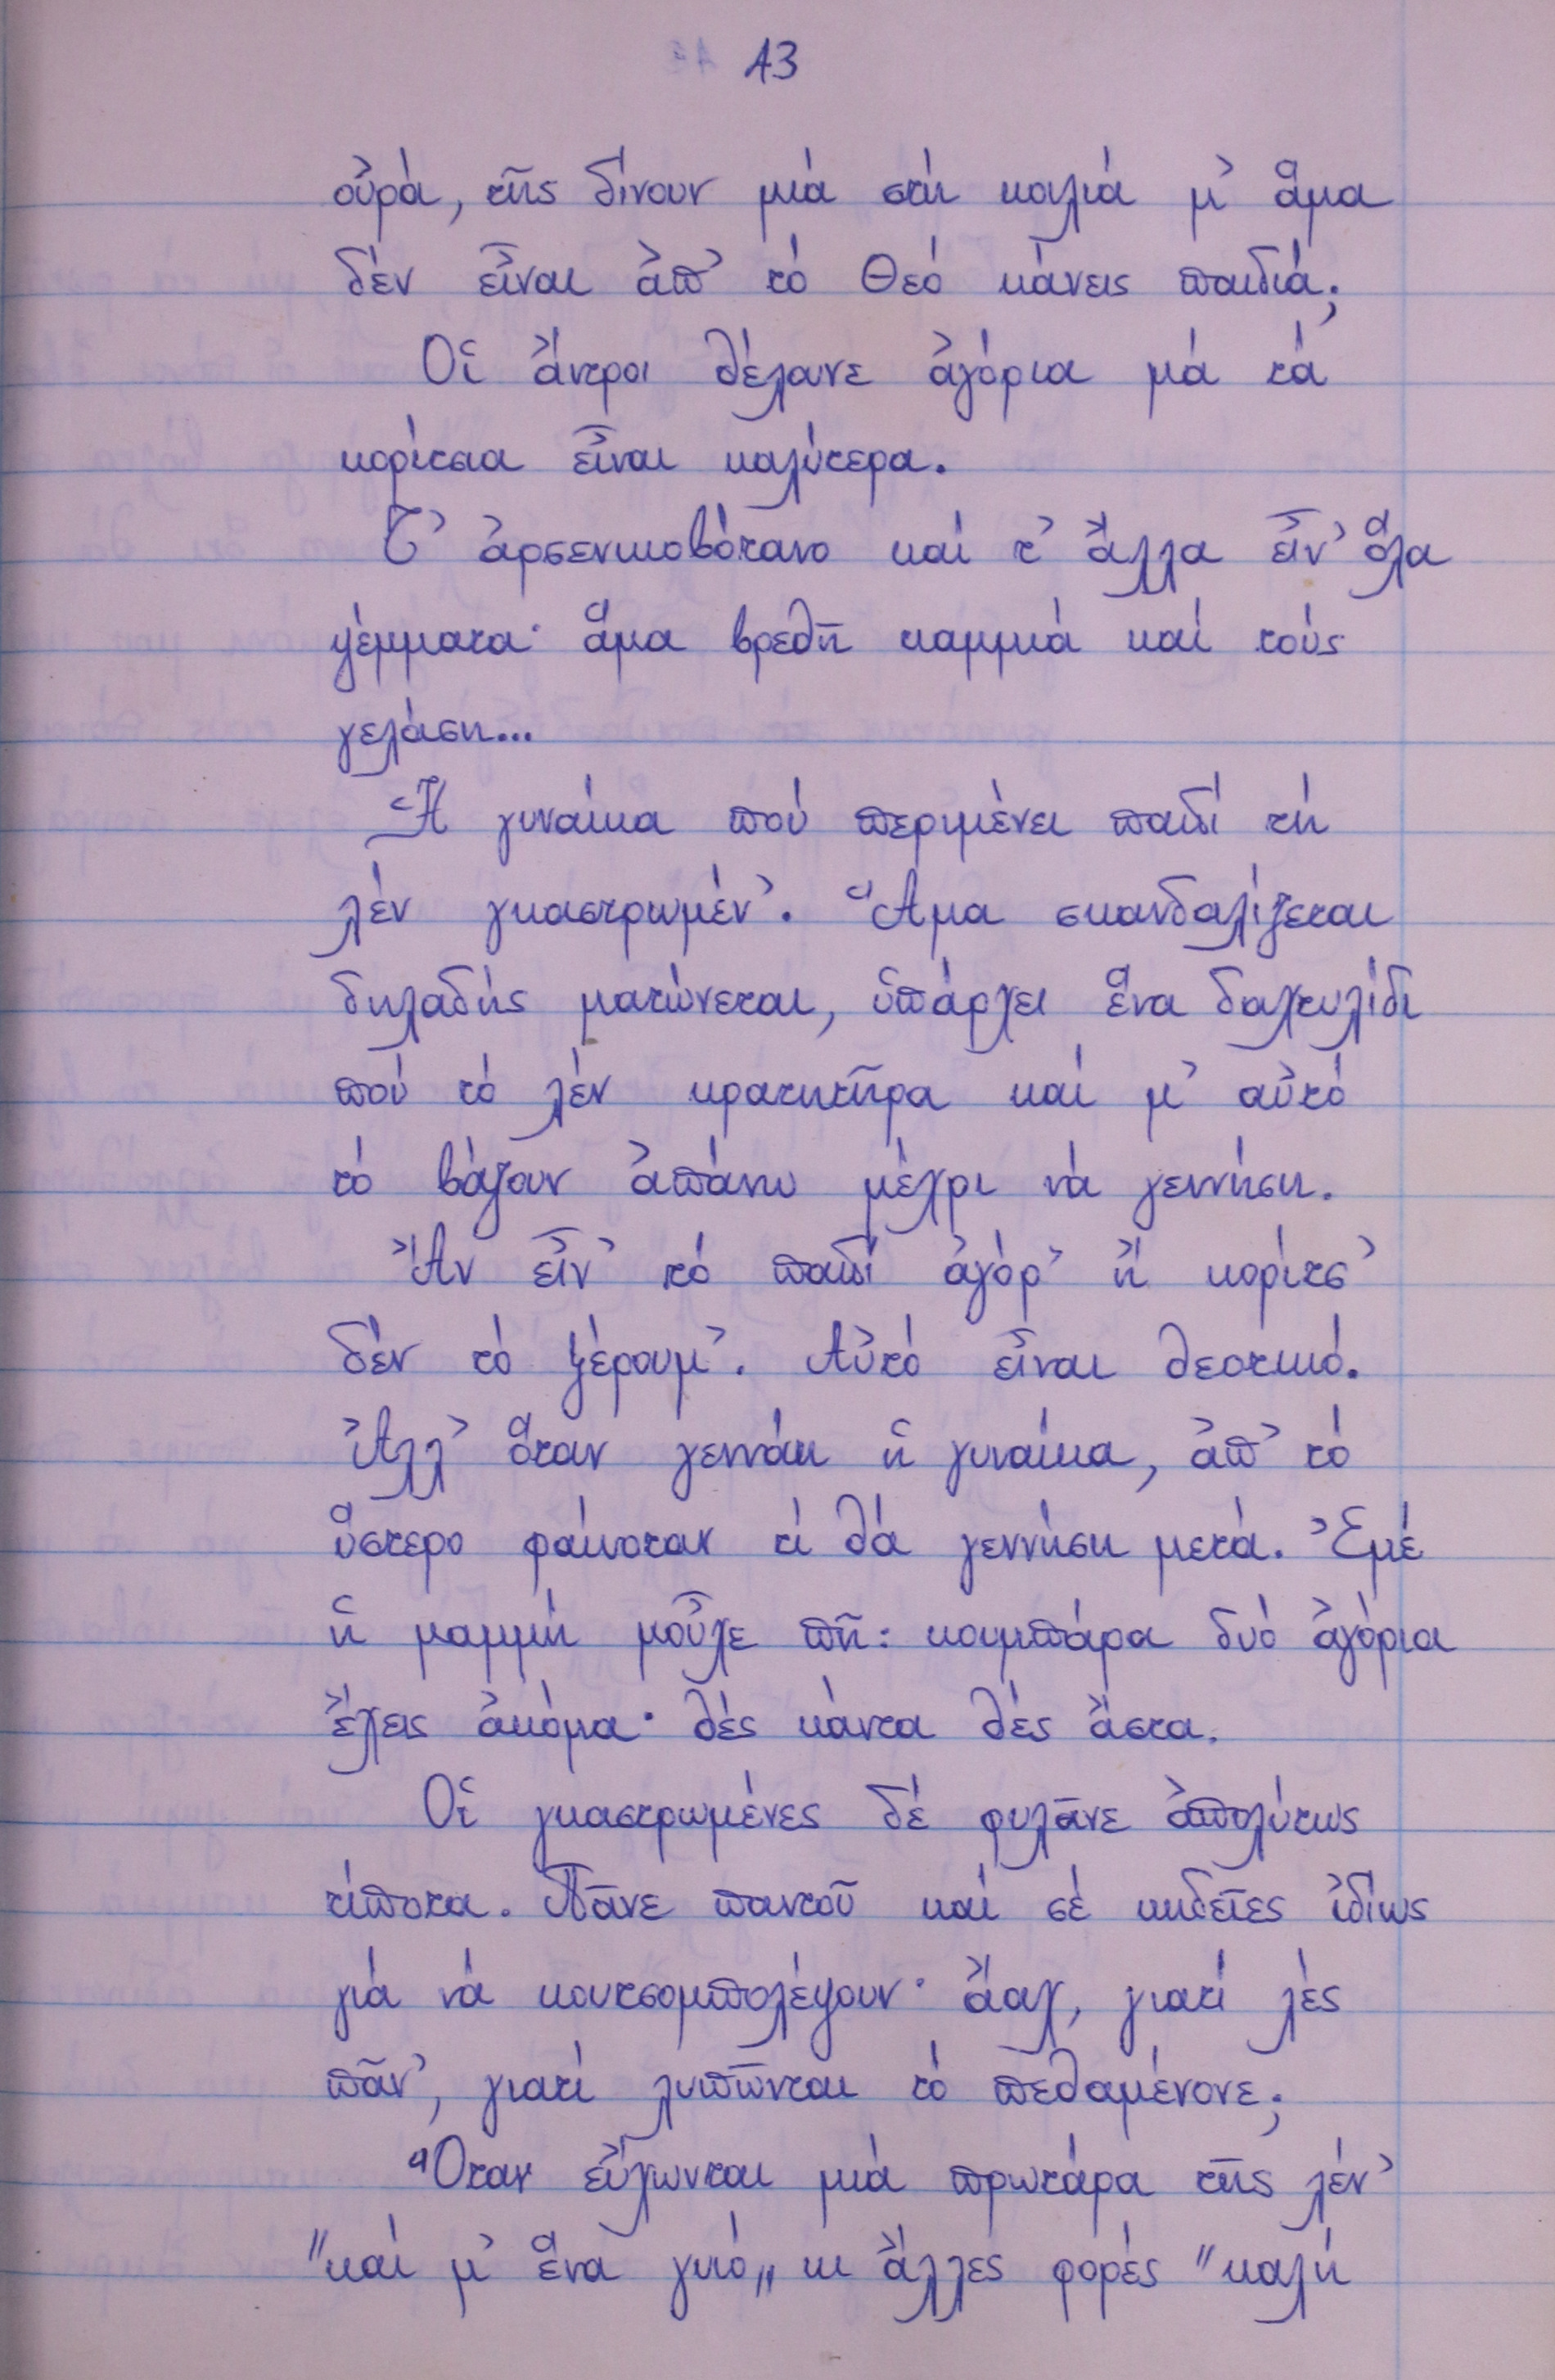 13
οὐρά, τῆς δίνουν μιά στή κοιλιά μ' ἅμα
δέν εἶναι ἀπ' τό Θεό κάνεις παιδιά;
Οἱ ἄντροι θέλανε ἀγόρια μά τά
κορίτσια εἶναι καλύτερα.
Τ' ἀρσενικοβότανο καί τ' ἄλλα εἶν' ὅλα
ψέμματα· ἅμα βρεθῆ καμμιά καί τούς
γελάση...
Ἡ γυναίκα πού περιμένει παιδί τή
λέν γκαστρωμέν'. Ἅμα σκανδαλίζεται
δηλαδής ματώνεται, ὑπάρχει ἕνα δαχτυλίδι
πού τό λέν κρατητῆρα καί μ' αὐτό
τό βάζουν ἀπάνω μέχρι νά γεννήση.
Ἄν εἶν' τό παιδί ἀγόρ' ἤ κορίτσ'
δέν τό ξέρουμ'. Αὐτό εἶναι θεοτικό.
Ἀλλ' ὅταν γεννάη ἡ γυναίκα, ἀπ' τό
ὕστερο φαίνοταν τί θά γεννήση μετά. Ἐμέ
ἡ μαμμή μοὖχε πῆ: κουμπάρα δυό ἀγόρια
ἔχεις ἀκόμα· θές κάντα θές ἄστα.
Οἱ γκαστρωμένες δέ φυλᾶνε ἀπολύτως
τίποτα. Πᾶνε παντοῦ καί σέ κηδεῖες ἰδίως
γιά νά κουτσομπολέψουν· ἄαχ, γιατί λές
πᾶν', γιατί λυπῶνται τό πεθαμένονε;
Ὅταν εὔχωνται μιά πρωτάρα τῆς λέν'
"καί μ' ἕνα γυιό„ κι ἄλλες φορές "καλή